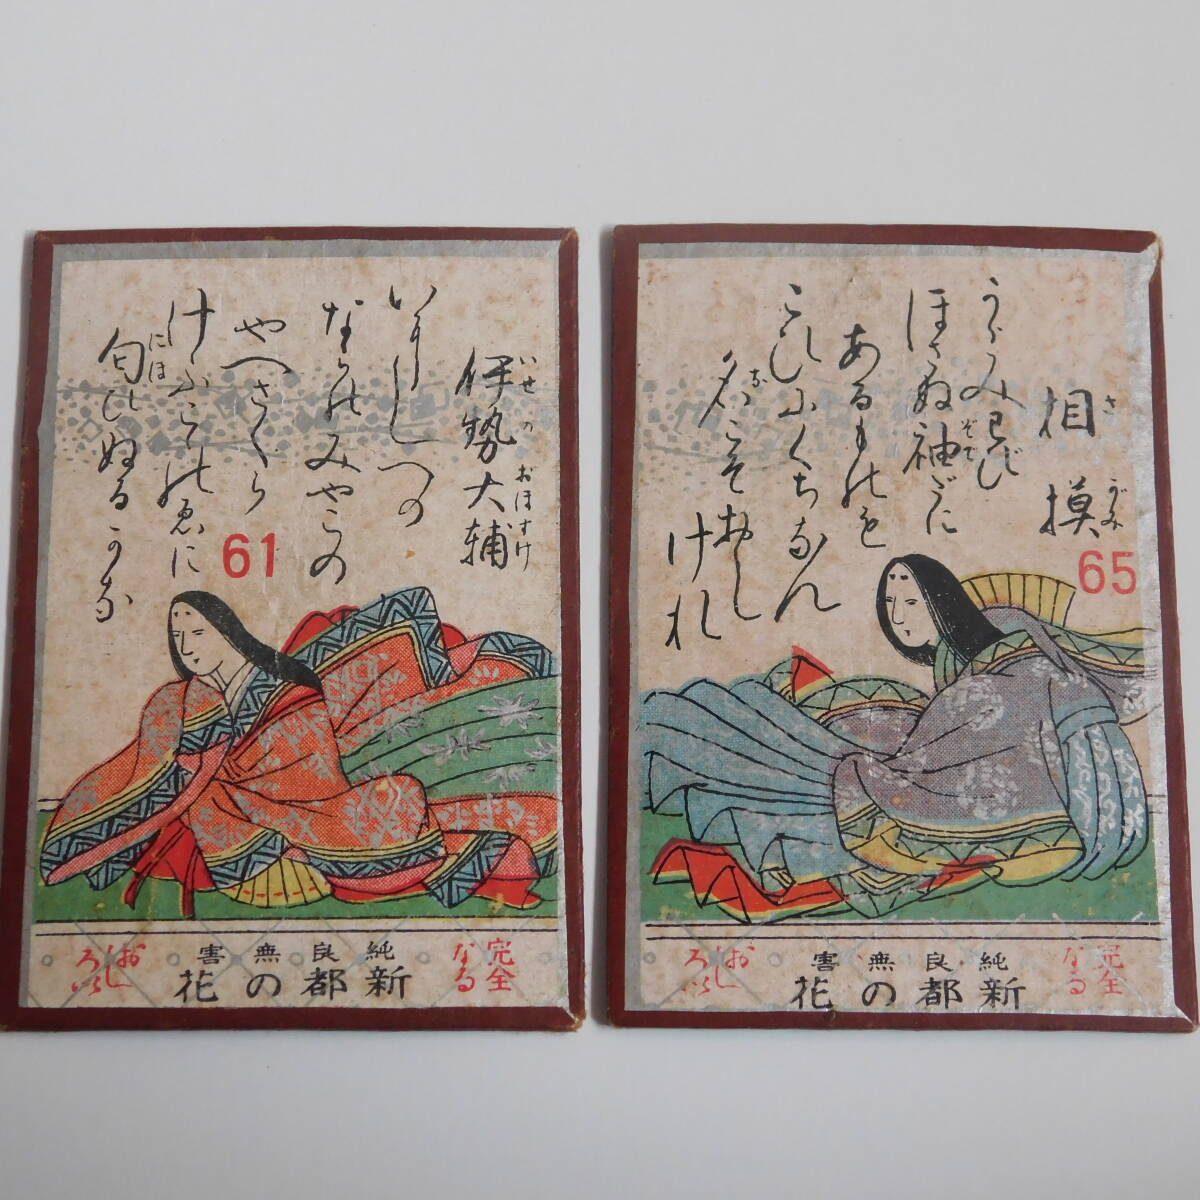 伊勢大輔
いせのおほすけ
いにしへの
ならのみやこの
やへさくら
けふこゝのゑに
にほ
匂ひぬるかな
61
完全
なる
純良無害
新都の花
おし
ろい
相摸
さがみ
うらみわび
ほさぬ袖だに
そで
あるものを
こひにくちなん
名こそおし
な
けれ
65
完全
なる
純良無害
新都の花
おし
ろい